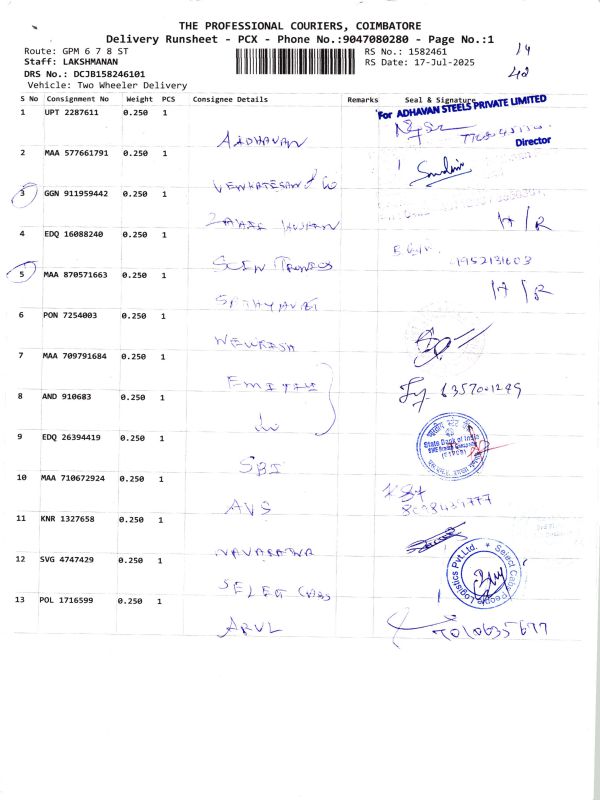 THE PROFESSIONAL COURIERS, COIMBATORE
Delivery Runsheet - PCX - Phone No.:9047080280 - Page No.:1
Route: GPM 6 7 8 ST RS No.: 1582461 14
Staff: LAKSHMANAN RS Date: 17-Jul-2025 42
DRS No.: DCJB158246101
Vehicle: Two Wheeler Delivery
S No Consignment No Weight PCS Consignee Details Remarks Seal & Signature
For ADHAVAN STEELS PRIVATE LIMITED
1 UPT 2287611 0.250 1
AADHAVAN
Director
2 MAA 577661791 0.250 1
VENKATESAN & Co
3 GGN 911959442 0.250 1
H/R
4 EDQ 16088240 0.250 1
5 MAA 870571663 0.250 1
H/R
6 PON 7254003 0.250 1
7 MAA 709791684 0.250 1
8 AND 910683 0.250 1
6357001299
9 EDQ 26394419 0.250 1
State Bank of India
SBI
10 MAA 710672924 0.250 1
AVS
11 KNR 1327658 0.250 1
12 SVG 4747429 0.250 1
Select Cabs People Logistics Pvt Ltd.
SELECT CABS
13 POL 1716599 0.250 1
ARUL
7010635677